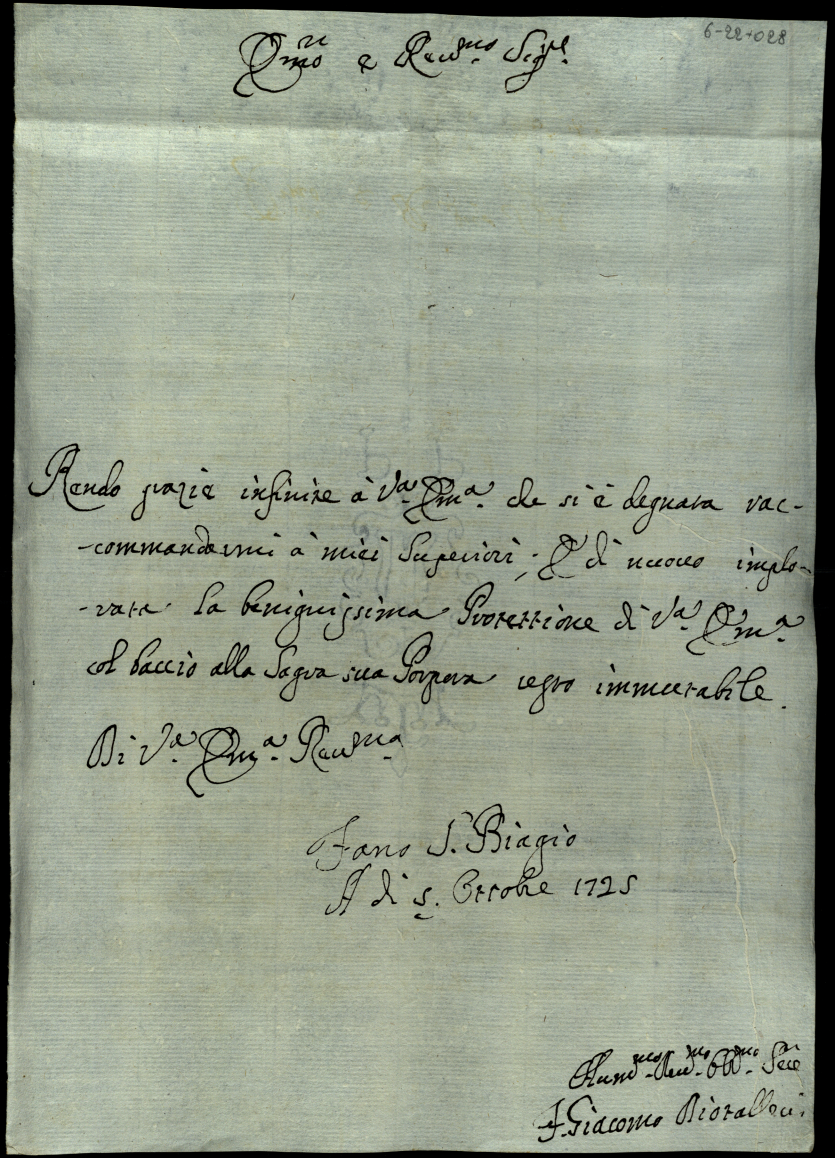 6-22-028
Em.mo e Rev.mo Sig.re
Rendo grazie infinite à V.a Em.a che si è degnata rac-
-commandarmi à miei Superiori; E di nuovo implo-
-rare la benignissima Protettione di V.a Em.a
col baccio alla Sagra sua Porpora resto immutabile.
Di V.a Em.a Rev.ma
Fano S. Biagio
A di 5. Ottobre 1725
Hum.mo Dev.mo Obb.mo Ser.e
F. Giacomo